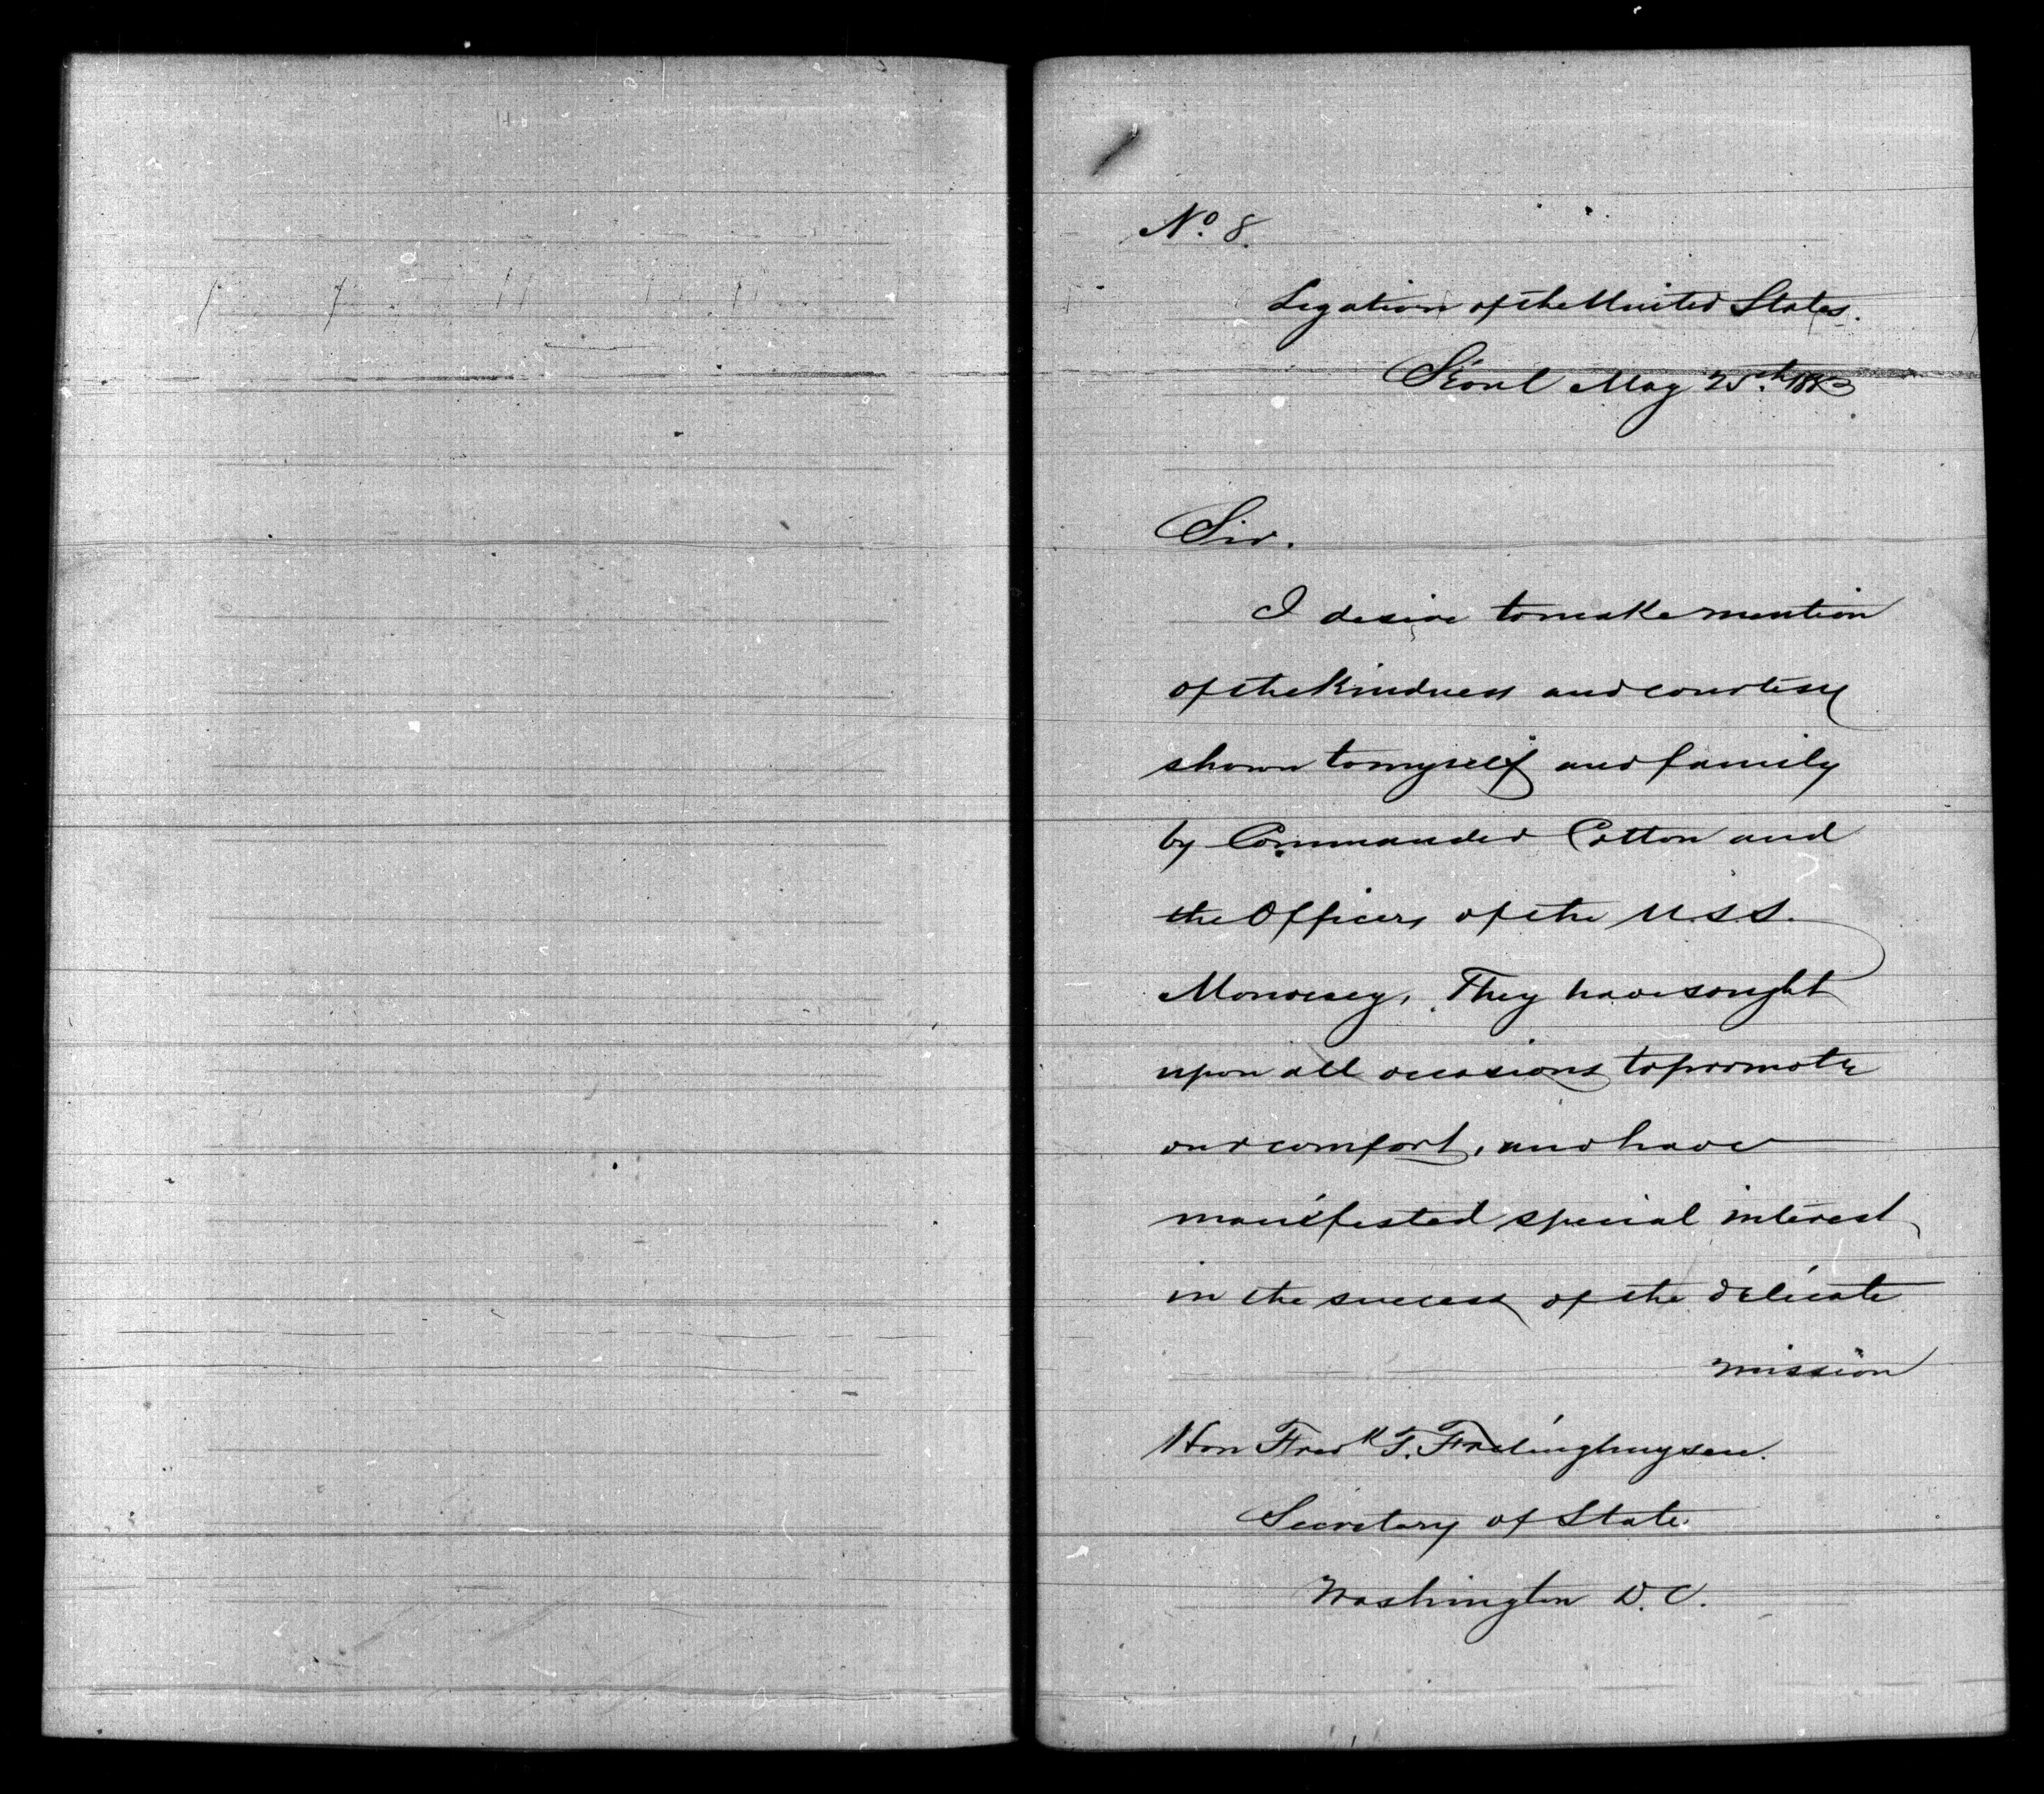 Nº 8.
Legation of the United States.
Séoul May 25th 1883
Sir.
I desire to make mention
of the kindness and courtesy
shown to myself and family
by Commander Cotton and
the Officers of the U.S.S.
Monocacy. They have sought
upon all occasions to promote
our comfort, and have
manifested special interest
in the success of the delicate
mission
Hon Fredk T. Frelinghuysen.
Secretary of State.
Washington D.C.